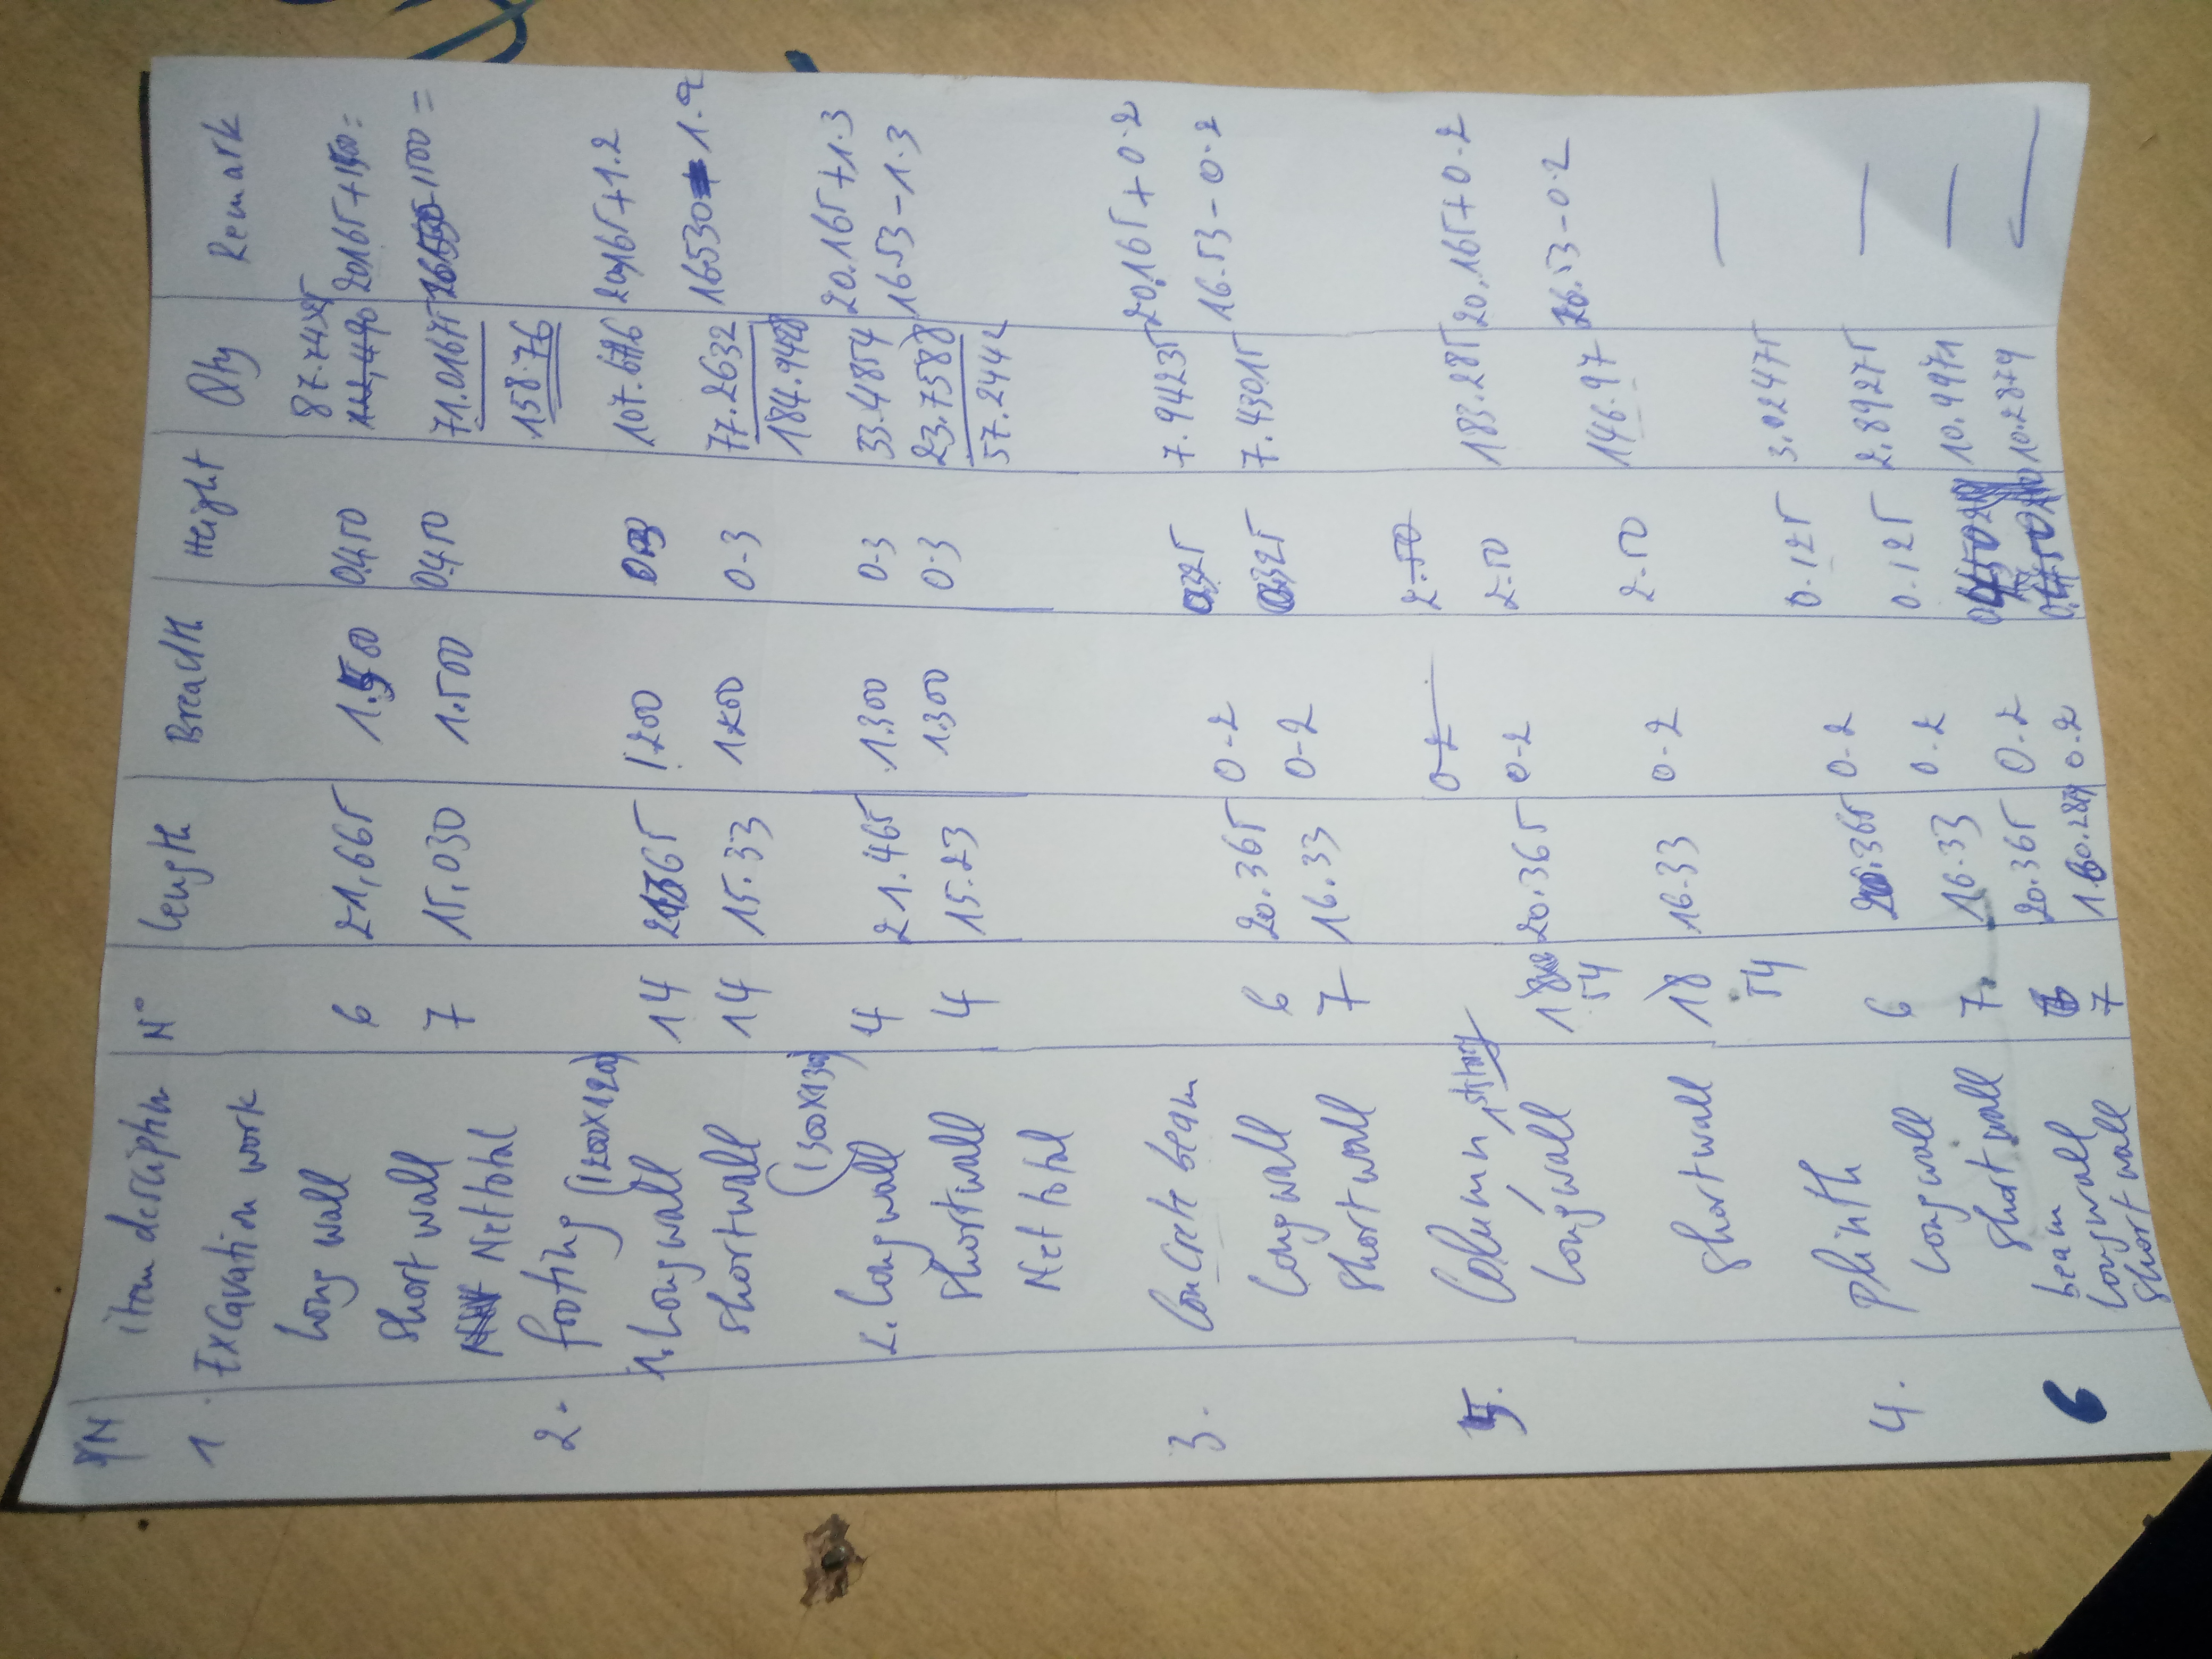 S/N | item descriptin | N° | Length | Breadth | Height | Qty | Remark
1. Excavation work
87.7432
Long wall 6 21,665 1.500 0.450 112,490 20165+1500=
Short wall 7 15,030 1.500 0.450 71.01675 16530-1500=
Net total 158.76
2. footing (1200x1200)
1. Long wall 14 21365 1.200 0.3 107.6796 20,165+1.2
Short wall 14 15.33 1200 0.3 77.2632 16530-1.2
184.9428
(1300x1300)
2. Long wall 4 21.465 1.300 0.3 33.4854 20.165+1.3
Short wall 4 15.23 1.300 0.3 23.7588 16.53-1.3
Net total 57.2442
3. Concrete beam
Long wall 6 20.365 0.2 0.325 7.94235 20,165+0.2
Short wall 7 16.33 0.2 0.325 7.43015 16.53-0.2
0.2 2.50
5. Column 1st story
Long wall 18 54 20.365 0.2 2.50 183.285 20.165+0.2
Short wall 18 54 16.33 0.2 2.50 146.97 16.53-0.2
4. Plinth
Long wall 6 20.365 0.2 0.125 3.02475 —
Short wall 7. 16.33 0.2 0.125 2.89275 —
6 beam
Long wall 6 20.365 0.2 10.9971 —
Short wall 7 0.2 10.2879 —